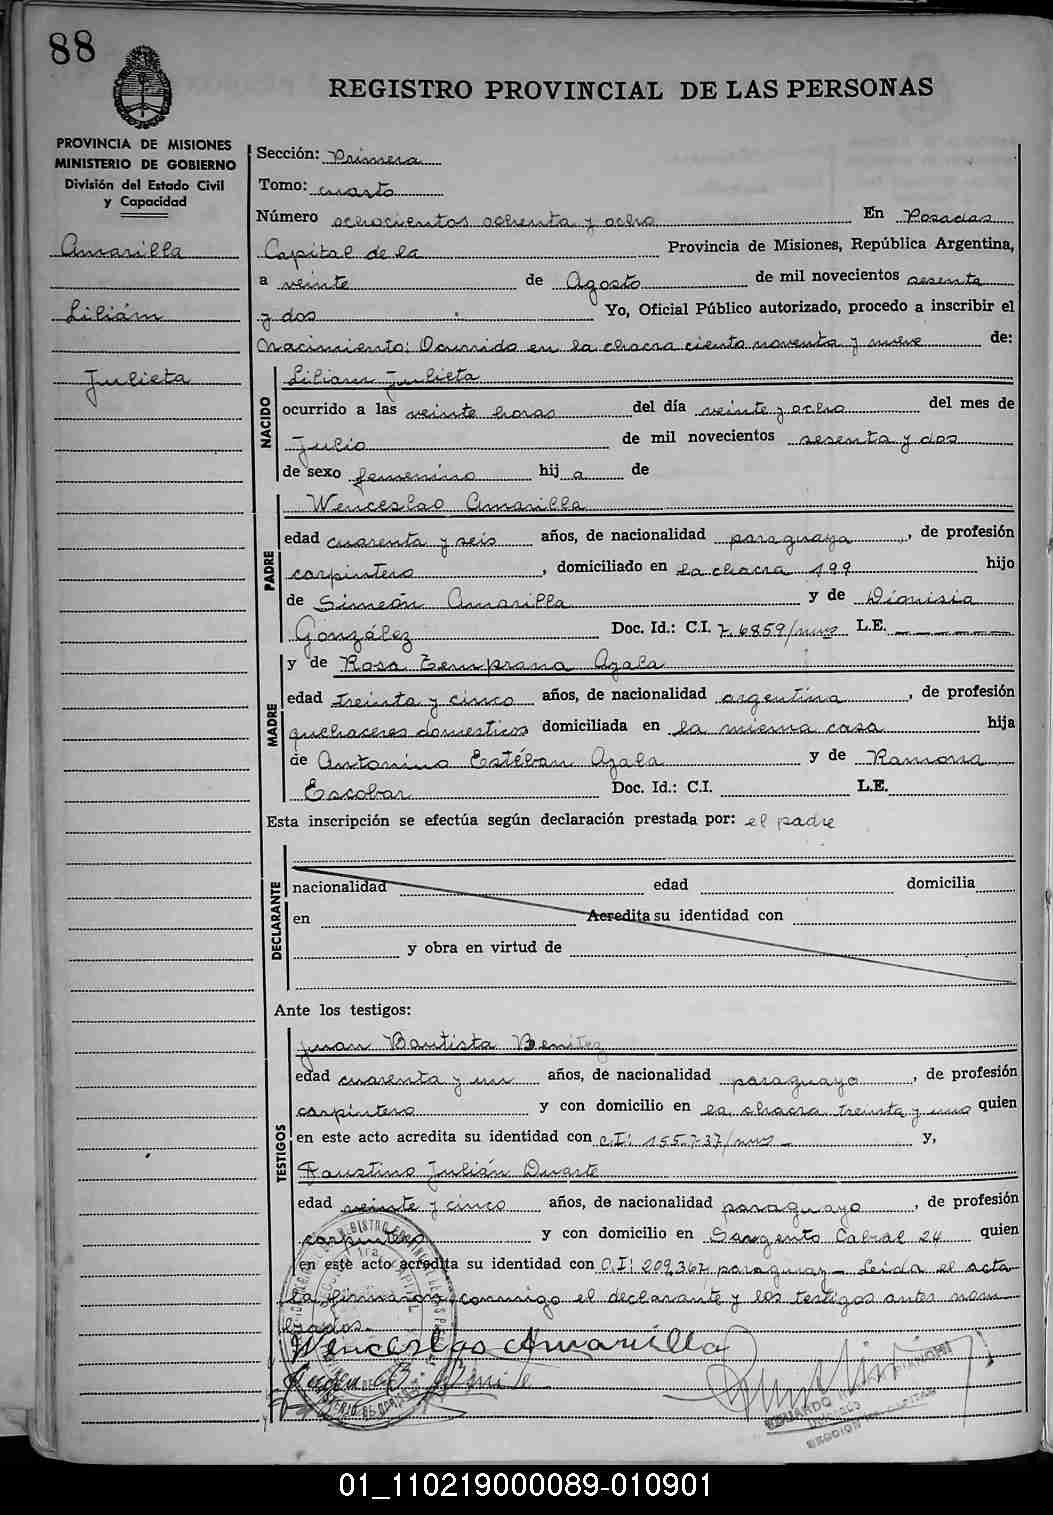 88
REGISTRO PROVINCIAL DE LAS PERSONAS
PROVINCIA DE MISIONES
MINISTERIO DE GOBIERNO
División del Estado Civil
y Capacidad
Amarilla
Lilián
Julieta
Sección: Primera
Tomo: cuarto
Número ochocientos ochenta y ocho En Posadas
Capital de la Provincia de Misiones, República Argentina,
a veinte de Agosto de mil novecientos sesenta
y dos Yo, Oficial Público autorizado, procedo a inscribir el
Nacimiento: Ocurrido en la chacra ciento noventa y nueve de:
NACIDO
Lilian Julieta
ocurrido a las veinte horas del día veinte y ocho del mes de
Julio de mil novecientos sesenta y dos
de sexo femenino hij a de
PADRE
Wenceslao Amarilla
edad cuarenta y seis años, de nacionalidad paraguaya, de profesión
carpintero, domiciliado en la chacra 199 hijo
de Simeón Amarilla y de Dionisia
González Doc. Id.: C.I. 7.6859/mnes L.E.
MADRE
y de Rosa Temprana Ayala
edad treinta y cinco años, de nacionalidad argentina, de profesión
quehaceres domesticos domiciliada en la misma casa hija
de Antonino Estéban Ayala y de Ramona
Escobar Doc. Id.: C.I. L.E.
Esta inscripción se efectúa según declaración prestada por: el padre
DECLARANTE
nacionalidad edad domicilia
en Acredita su identidad con
y obra en virtud de
Ante los testigos:
TESTIGOS
Juan Bautista Benitez
edad cuarenta y un años, de nacionalidad paraguayo, de profesión
carpintero y con domicilio en la chacra treinta y uno quien
en este acto acredita su identidad con C.I: 155.737/mnes y,
Faustino Julián Duarte
edad veinte y cinco años, de nacionalidad paraguayo, de profesión
carpintero y con domicilio en Sargento Cabral 24 quien
en este acto acredita su identidad con C.I: 209.367 paraguay - Leida el acta
la firmaron conmigo el declarante y los testigos antes nom
brados.
Wenceslao Amarilla
EDUARDO
01_110219000089-010901